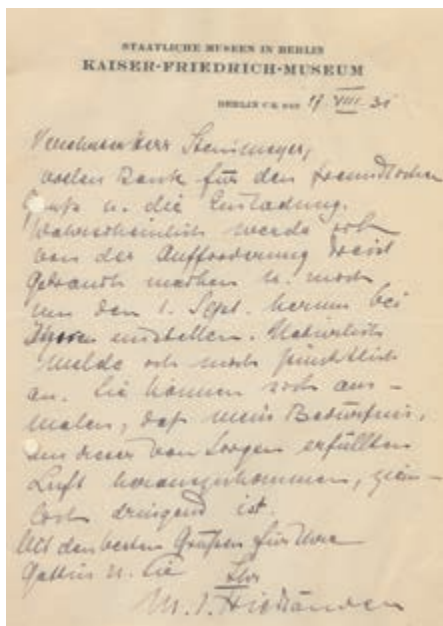 STAATLICHE MUSEEN IN BERLIN
KAISER-FRIEDRICH-MUSEUM
BERLIN C 2, DEN 17 VIII 31
Verehrter Herr Steinmeyer,
vielen Dank für den freundlichen
Gruß u. die Einladung.
Wahrscheinlich werde ich
von der Aufforderung dreist
Gebrauch machen u. mich
um den 1. Sept. herum bei
Ihnen einstellen. Natürlich
melde ich mich pünktlich
an. Sie können sich aus-
malen, daß mein Bedürfnis,
aus dieser von Sorgen erfüllten
Luft herauszukommen, ziem-
lich dringend ist.
Mit den besten Grüßen für Ihre
Gattin u. Sie Ihr
M. J. Friedländer